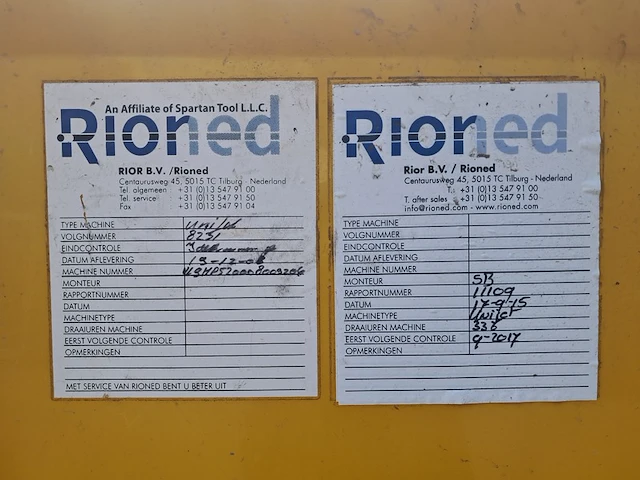 An Affiliate of Spartan Tool L.L.C.
Rioned
RIOR B.V. /Rioned
Centaurusweg 45, 5015 TC Tilburg - Nederland
Tel. algemeen +31 (0)13 547 91 00
Tel. service +31 (0)13 547 91 50
Fax +31 (0)13 547 91 04
TYPE MACHINE
VOLGNUMMER 8231
EINDCONTROLE
DATUM AFLEVERING 19-12-08
MACHINE NUMMER
MONTEUR
RAPPORTNUMMER
DATUM
MACHINETYPE
DRAAIUREN MACHINE
EERST VOLGENDE CONTROLE
OPMERKINGEN
MET SERVICE VAN RIONED BENT U BETER UIT
Rioned
Rior B.V. / Rioned
Centaurusweg 45, 5015 TC Tilburg - Nederland
T. +31 (0)13 547 91 00
T. after sales +31 (0)13 547 91 50
info@rioned.com - www.rioned.com
TYPE MACHINE
VOLGNUMMER
EINDCONTROLE
DATUM AFLEVERING
MACHINE NUMMER
MONTEUR SB
RAPPORTNUMMER 11109
DATUM 17-9-15
MACHINETYPE Unijet
DRAAIUREN MACHINE 333
EERST VOLGENDE CONTROLE 9-2017
OPMERKINGEN